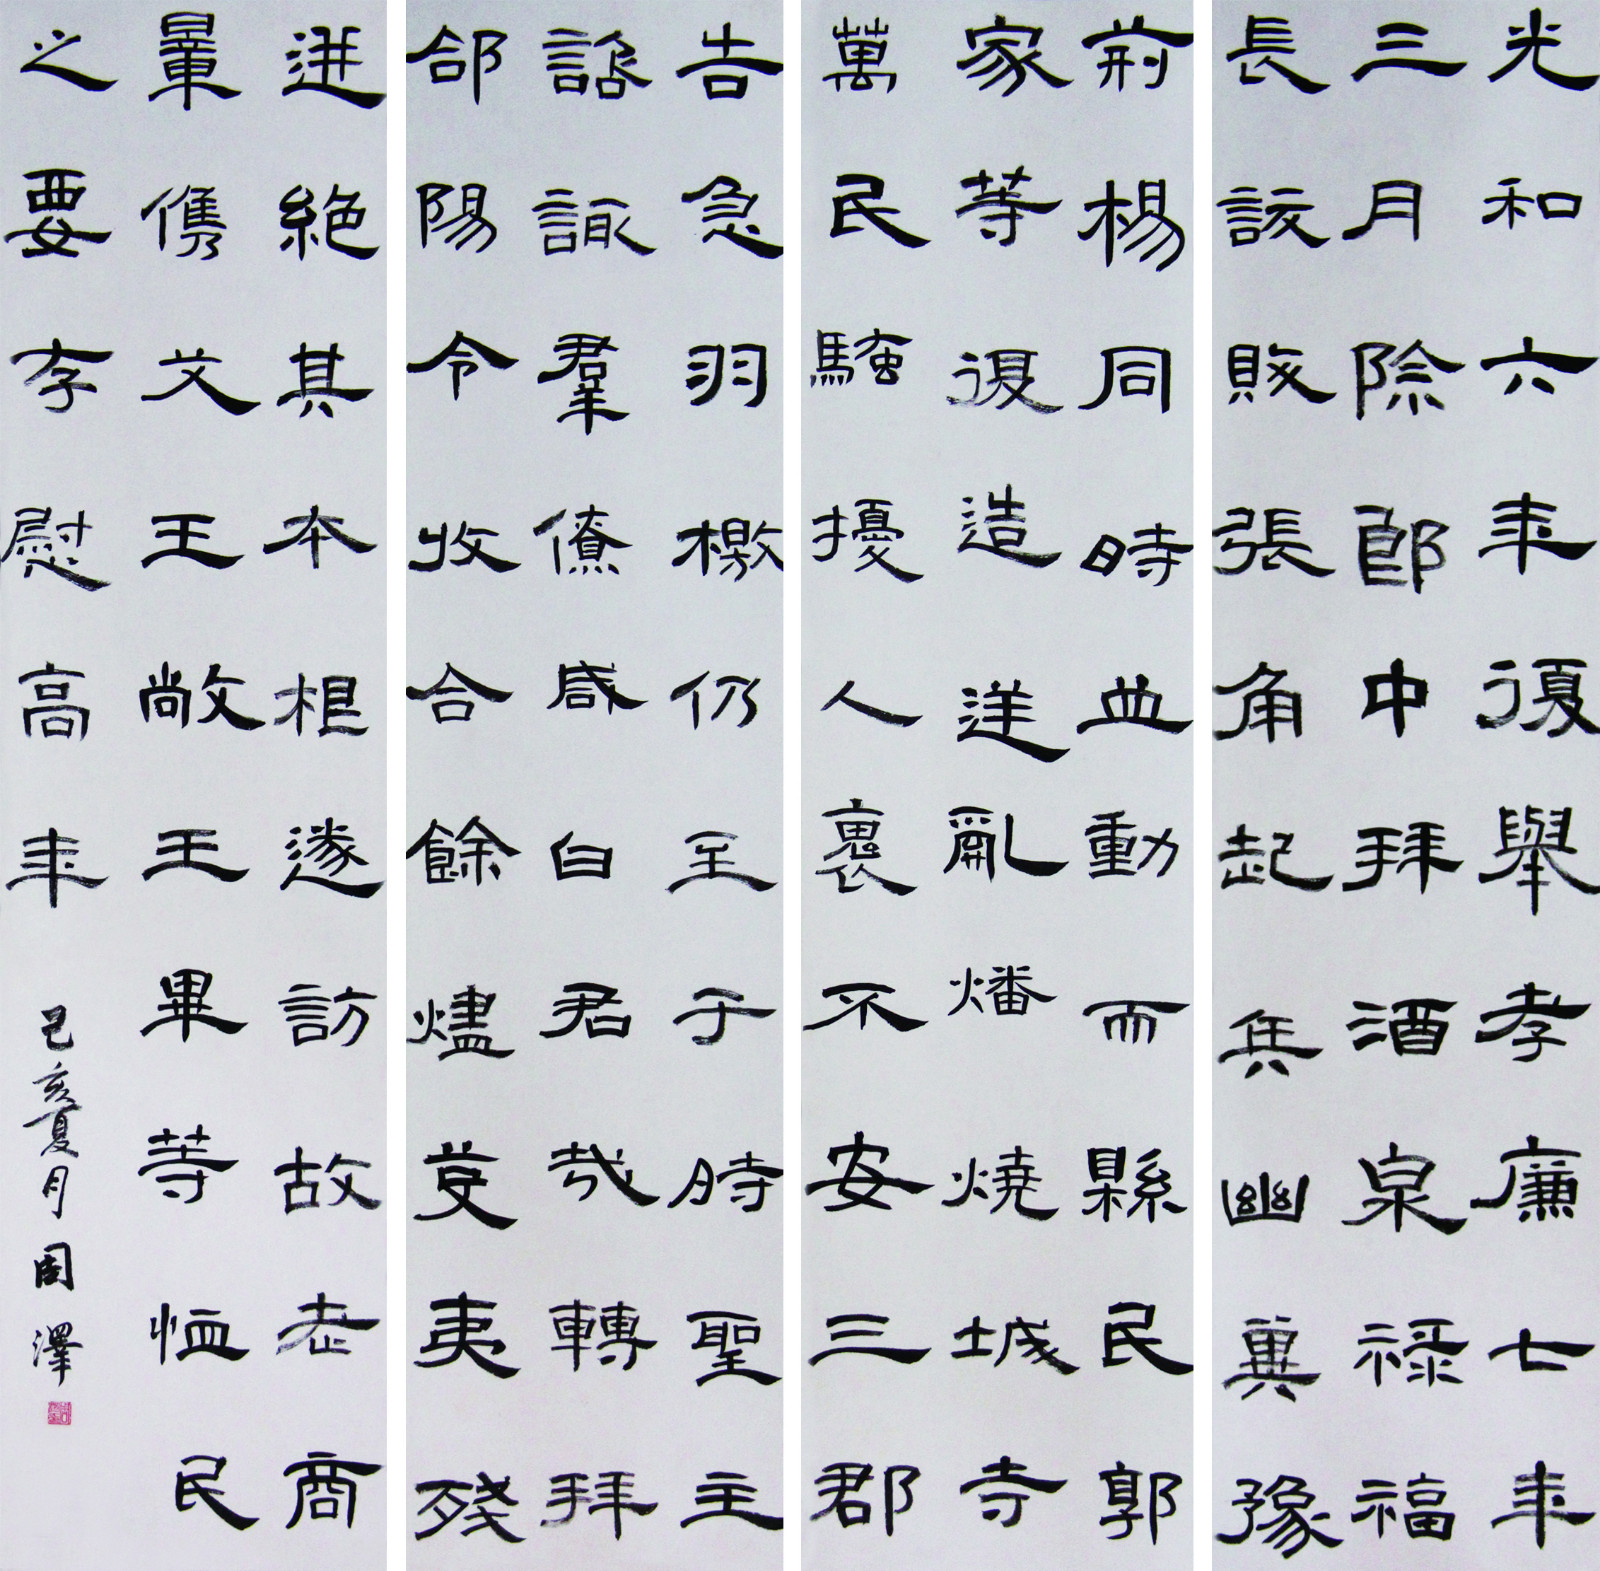 光和六年復舉孝廉七年
三月除郎中拜酒泉祿福
長訞賊張角起兵幽冀兗豫
荊楊同時並動而縣民郭
家等復造逆亂燔燒城寺
萬民騷擾人裹不安三郡
告急羽檄仍至于時聖主
諮諏群僚咸曰君哉轉拜
郃陽令收合餘燼芟夷殘
迸絕其本根遂訪故老商
量儁艾王敞王畢等恤民
之要存慰高年
己亥夏月 周澤